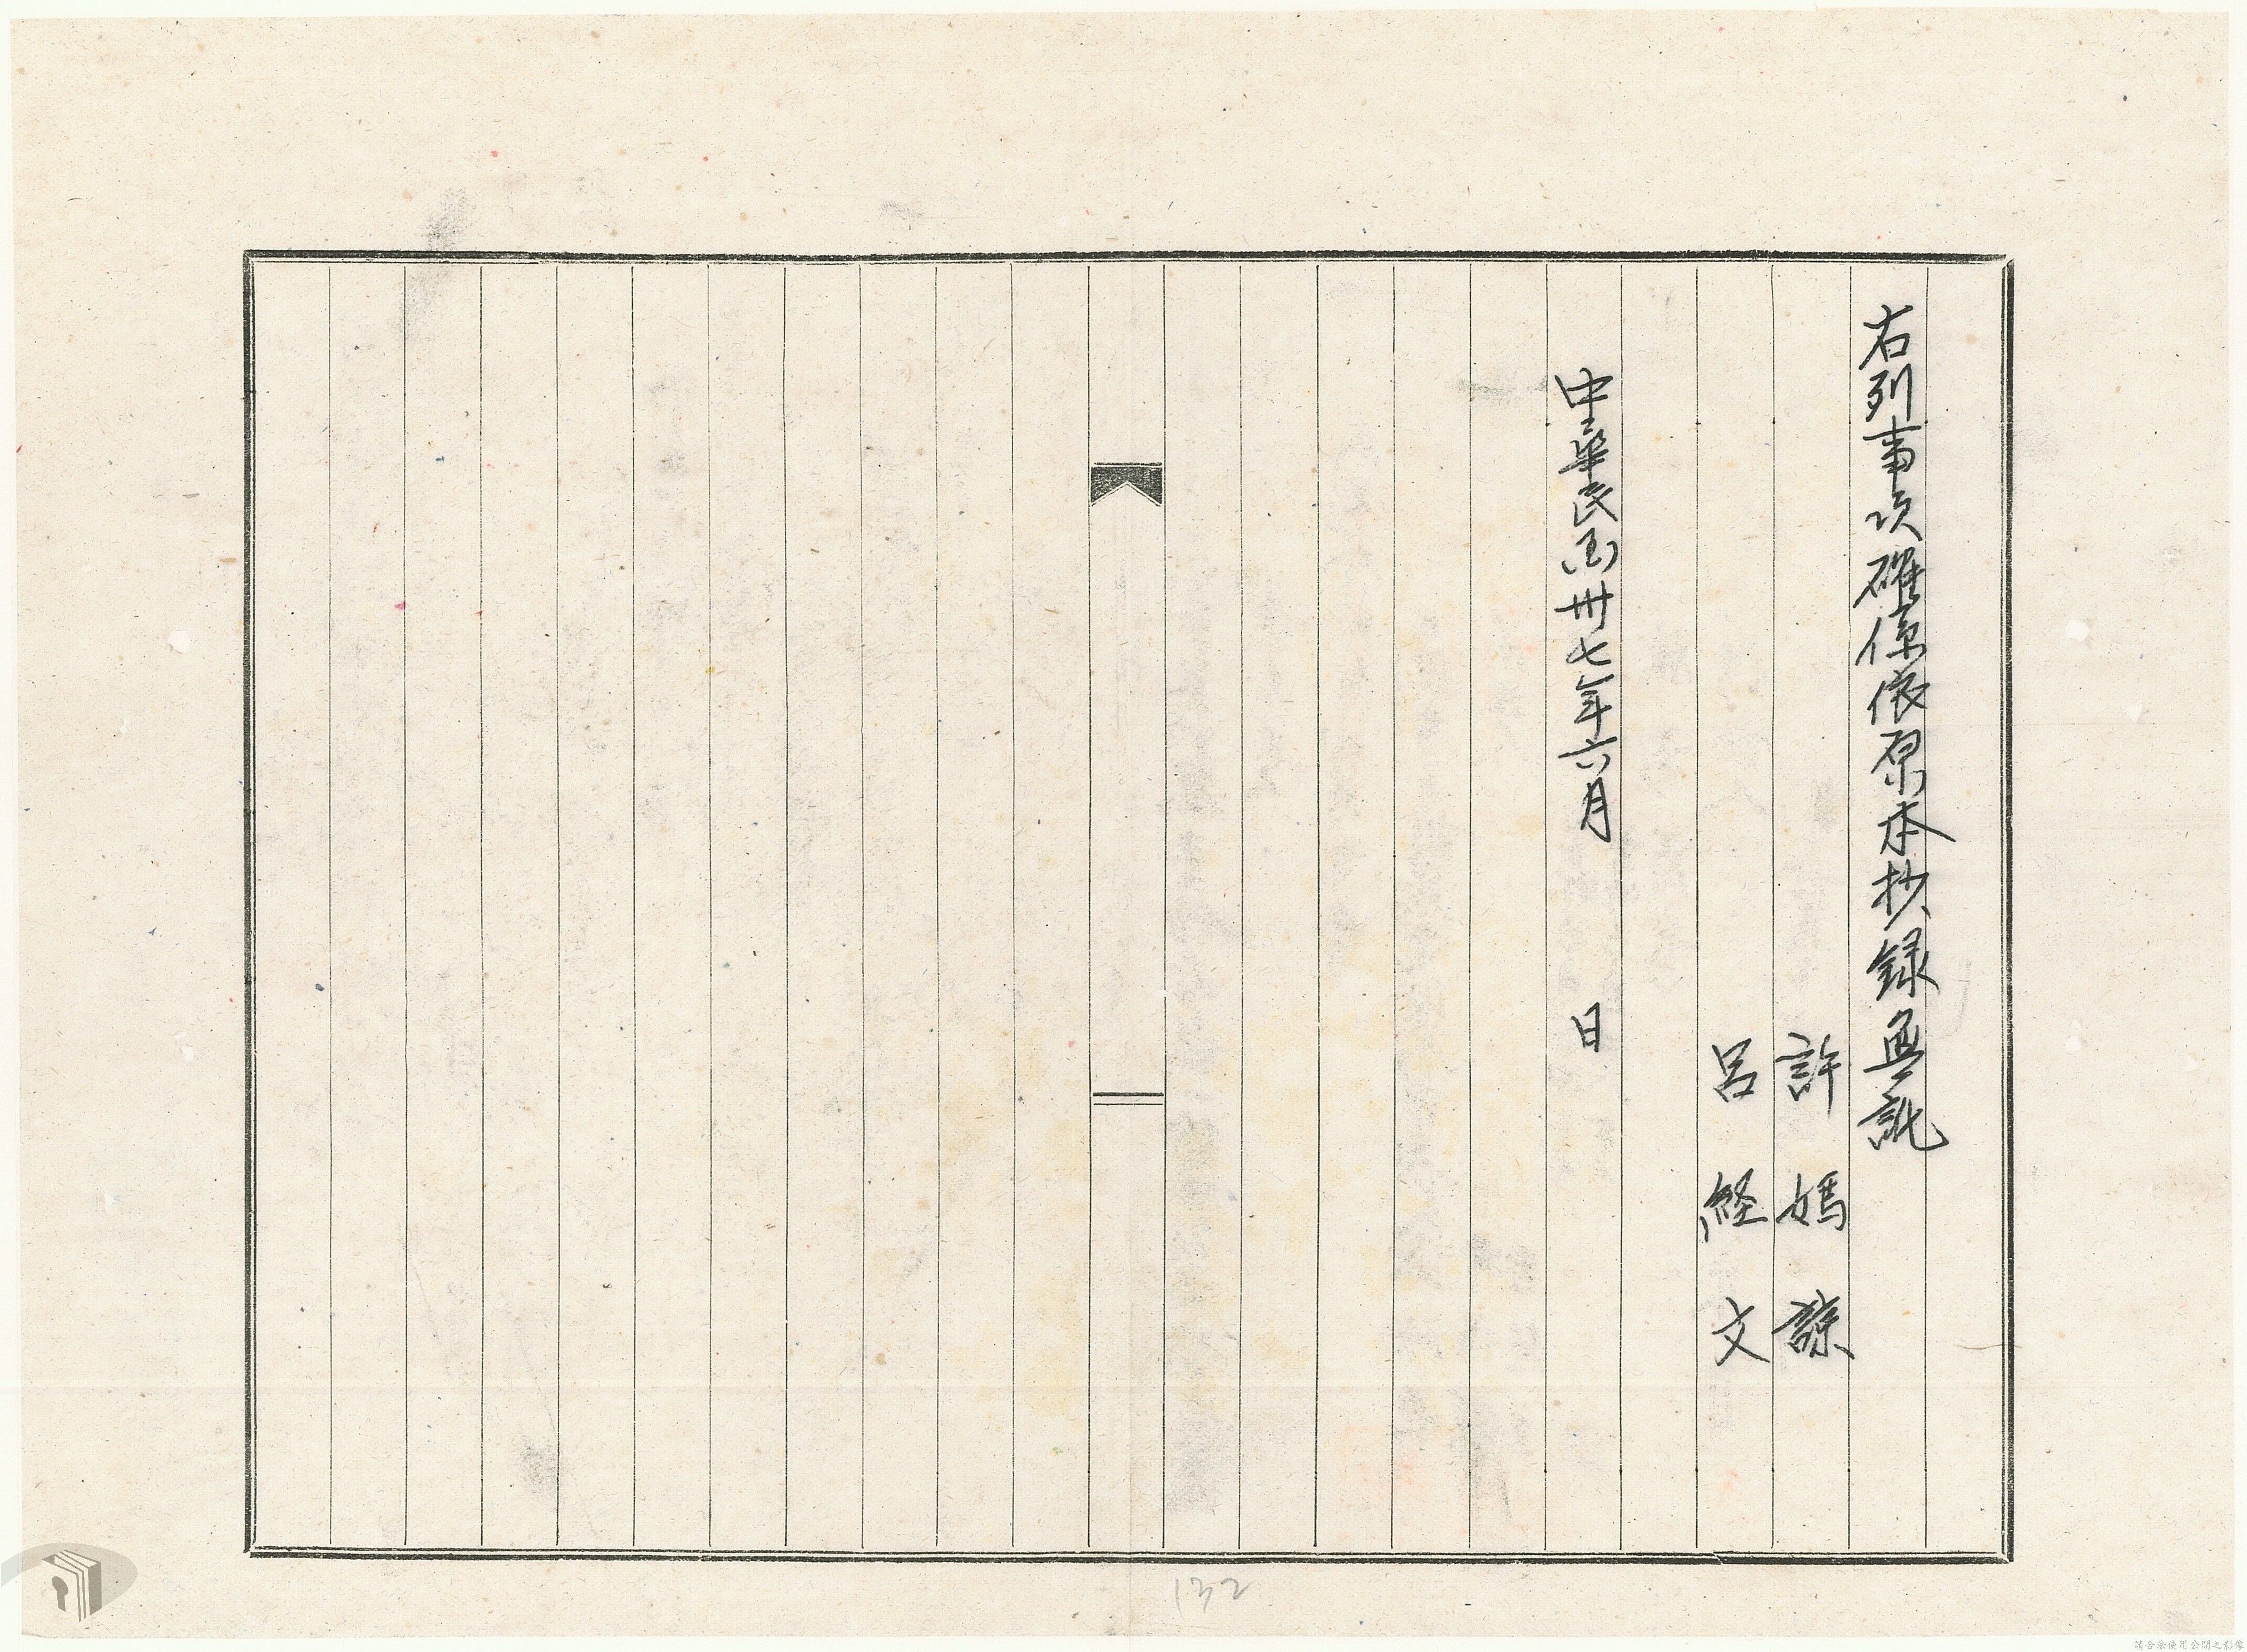 右列事項確係依原本抄録無訛
許媽諒
呂経文
中華民國卅七年六月　　日
132
請合法使用公開之影像